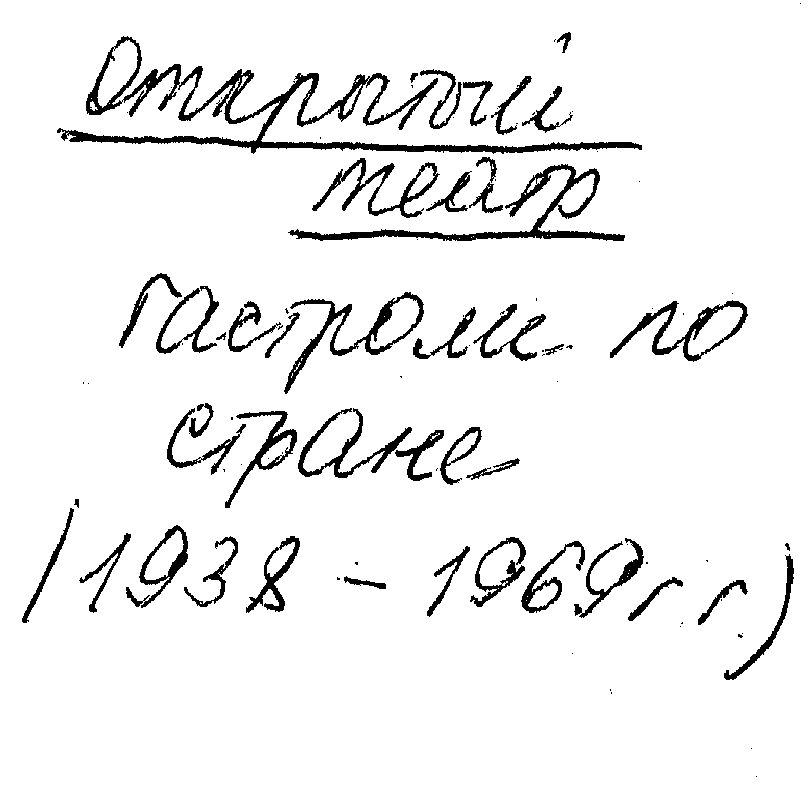 Открытый
театр
гастроли по
стране
(1938 – 1969 г.г.)